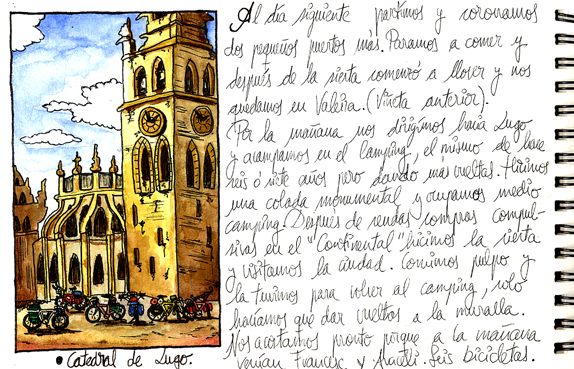 Al día siguiente partimos y coronamos
dos pequeños puertos más. Paramos a comer y
después de la siesta comenzó a llover y nos
quedamos en Valeira. (Viñeta anterior).
Por la mañana nos dirigimos hacia Lugo
y acampamos en el Camping, el mismo de hace
seis ó siete años pero dando más vueltas. Hicimos
una colada monumental y ocupamos medio
camping. Después de sendas compras compul-
sivas en el "Continental" hicimos la siesta
y visitamos la ciudad. Comimos pulpo y
la tuvimos para volver al camping, solo
hacíamos que dar vueltas a la muralla.
Nos acostamos pronto porque a la mañana
venían Francesc y Araceli. Seis bicicletas.
• Catedral de Lugo.